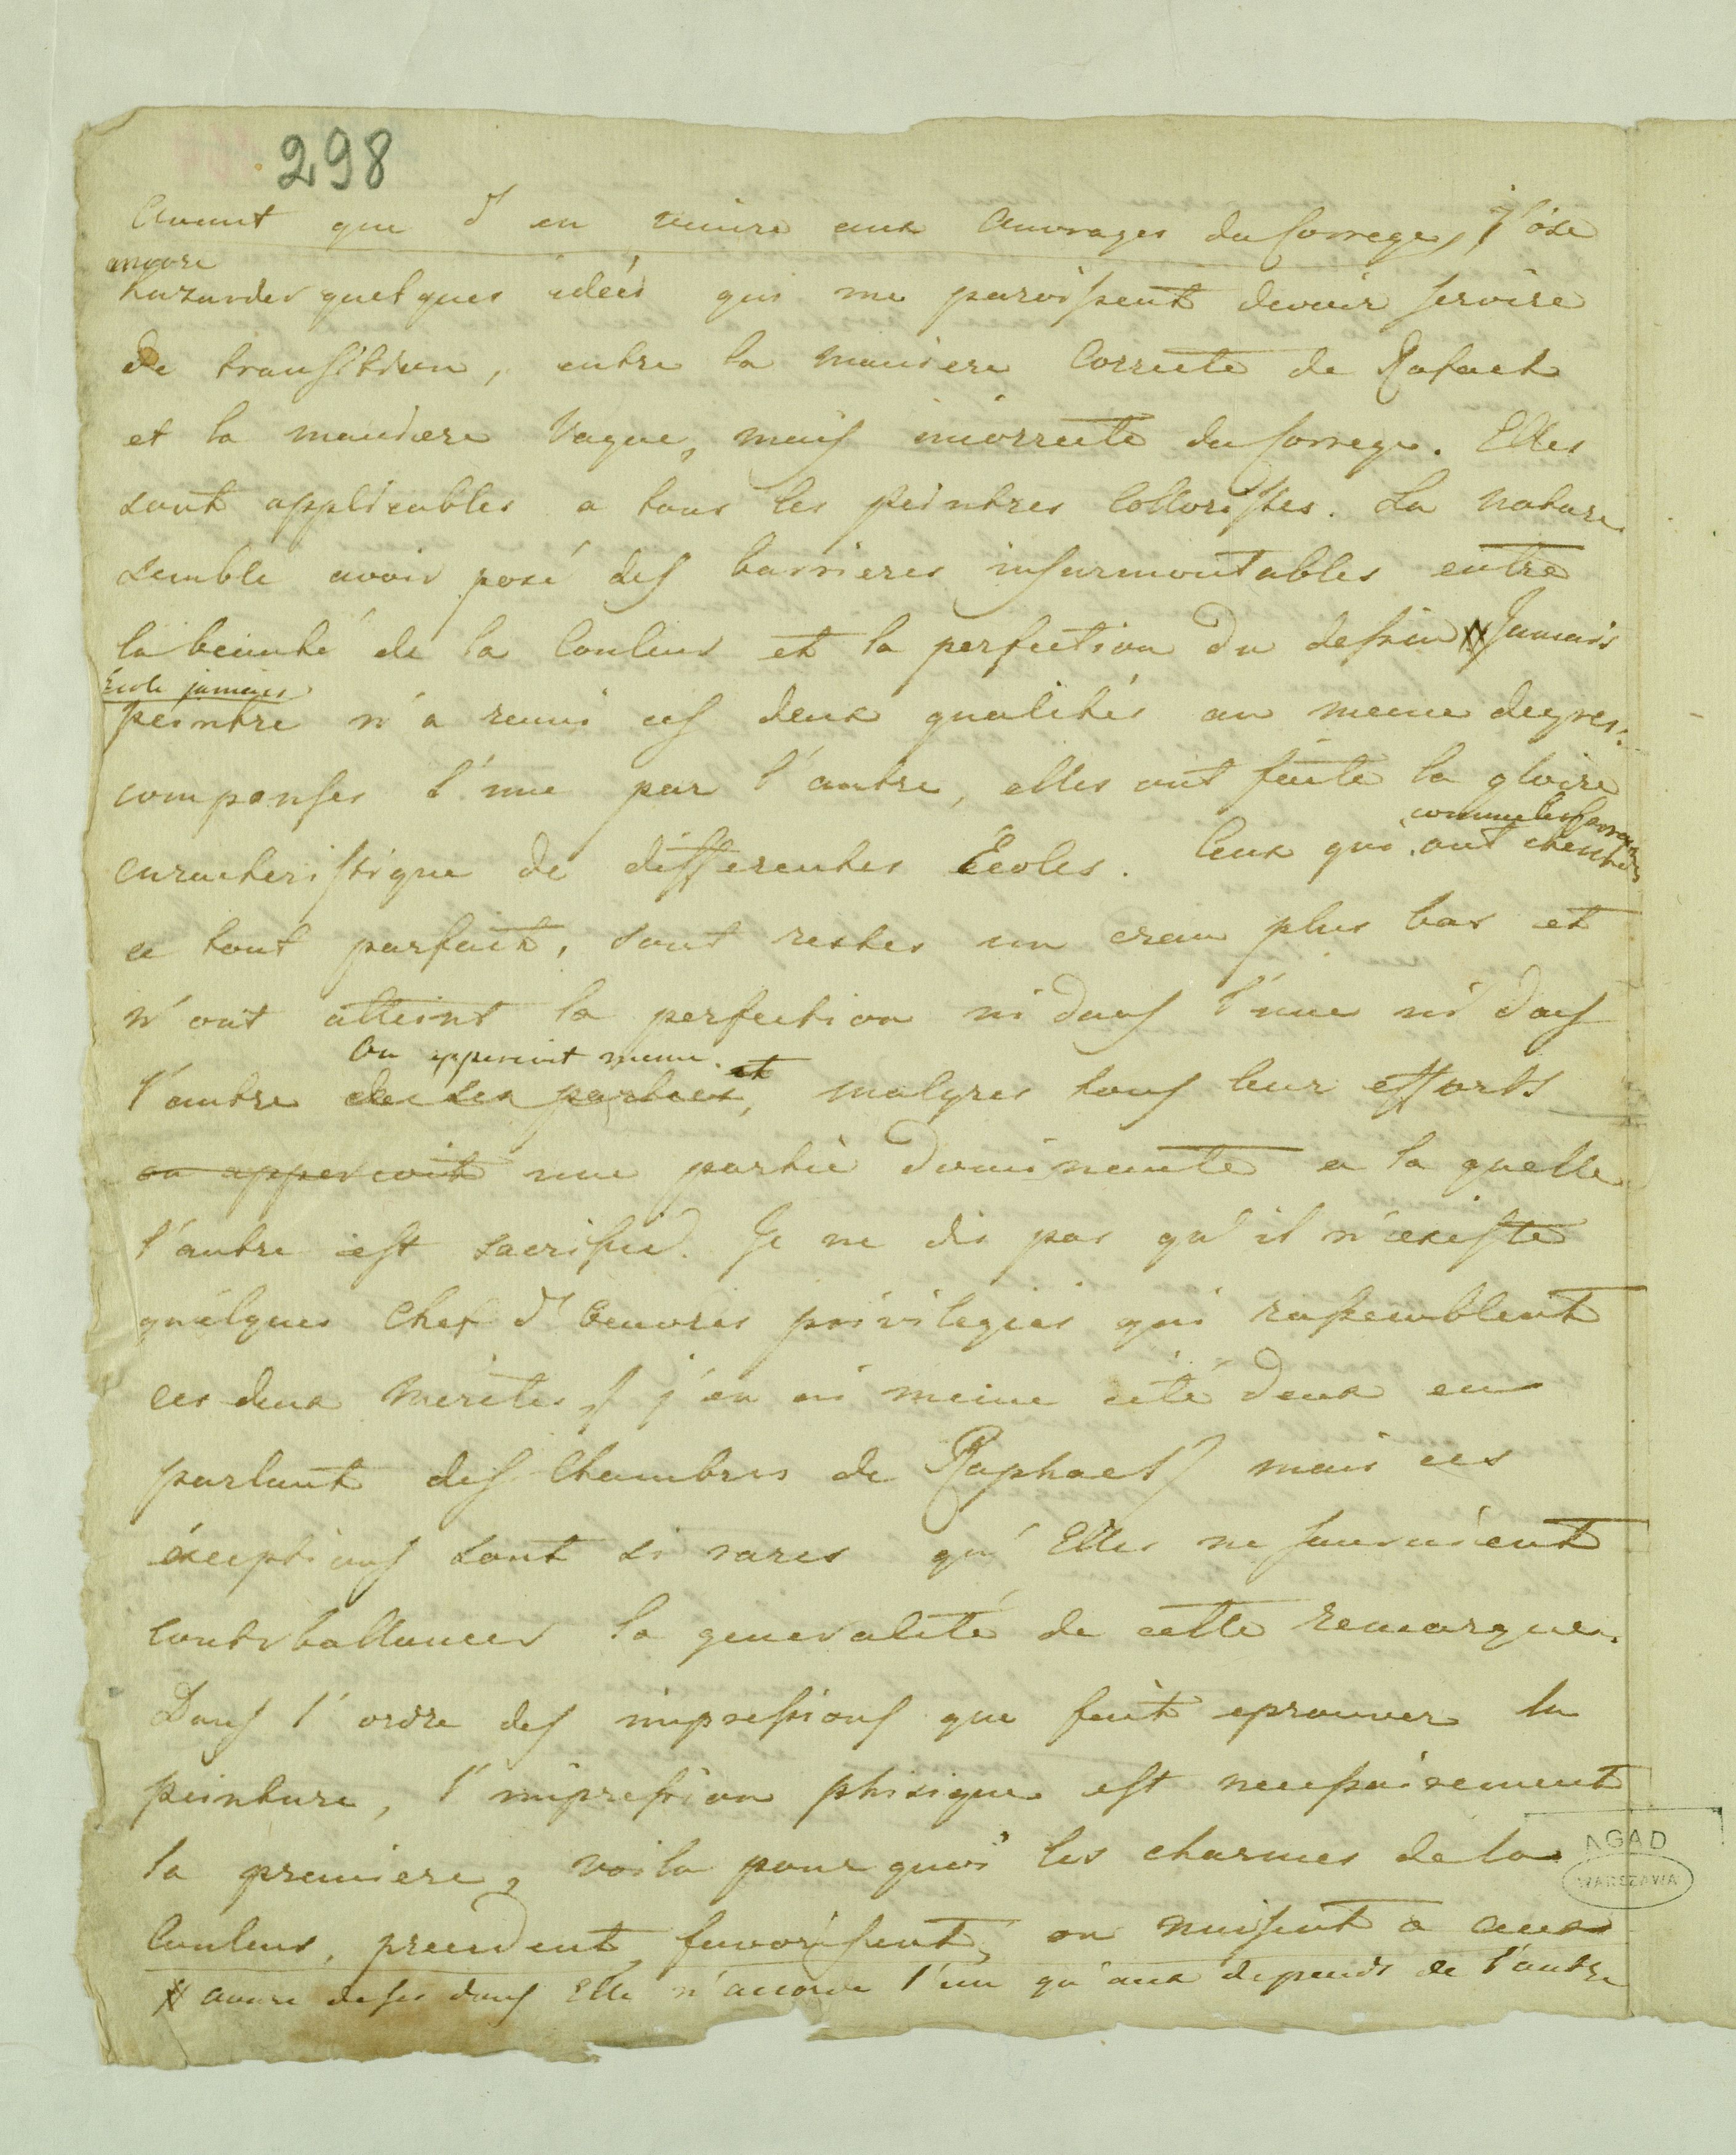 298
Avant que d'en venire aux Ouvrages du Correge, j'ose
encore
hazarder quelques idées qui me paroissent devoir servire
de transition, entre la maniere Correcte de Rafael
et la maniere Vague, mais incorrecte du Correge. Elles
sont applicables a tous les peintres Colloristes. La nature
semble avoir posé des barrieres insurmontables entre
la beauté de la Couleur et la perfection du dessin # Jamais
École jamais
peintre n'a reuni ces deux qualités au meme degres.
compenses l'une par l'autre, elles ont faite la gloire
comme les
caracteristique de differentes Écoles. Ceux qui ont cherchés
a tout parfait, sont restes un cran plus bas et
n'ont atteint la perfection ni dans l'une ni dans
On appercoit meme
l'autre de ses parties, et malgres tous leur efforts
on appercoit une partie dominante a la quelle
l'autre est sacrifié. Je ne dis pas qu'il n'existe
quélques Chef d'Oeuvres privilegies qui rassemblent
ces deux merites, j'en ai meme cité deux en
parlant des Chambres de Raphael, mais ces
éxceptions sont si rares qu'Elles ne sauroient
Contrballancer la generalité de cette remarque.
Dans l'ordre des impressions que fait eprouver la
peinture, l'impression phisique est necessairement
la premiere, voila pourquoi les charmes de la
Couleur, precedent, favorisent, ou nuisent a ceux
# avare de ses dons Elle n'accorde l'un qu'aux depends de l'autre
AGAD
WARSZAWA